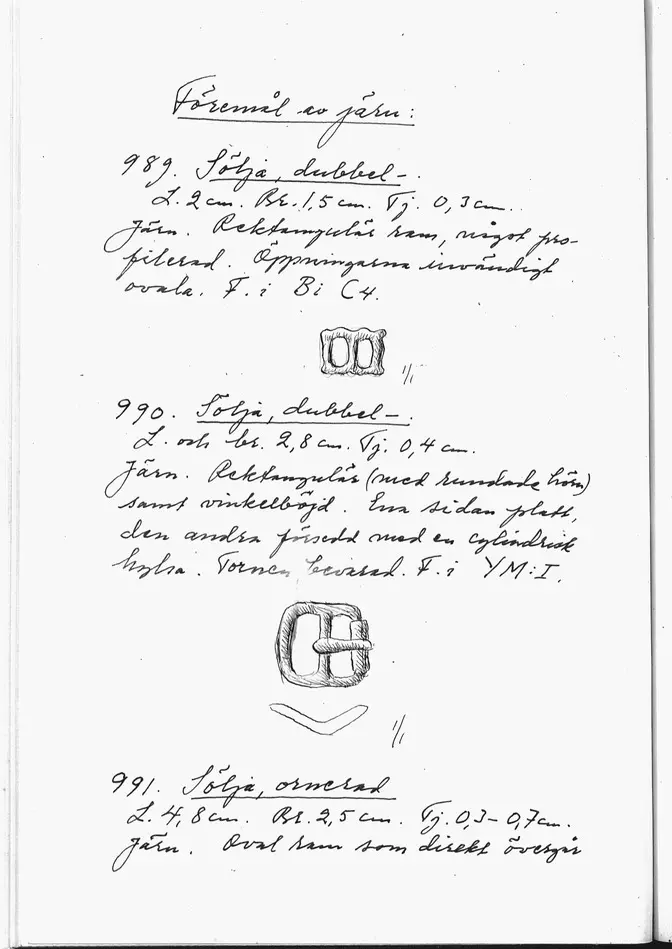 Föremål av järn:
989. Sölja, dubbel-.
L. 2 cm. Br. 1,5 cm. Tj. 0,3 cm.
Järn. Rektangulär ram, något pro-
filerad. Öppningarna invändigt
ovala. F. i Bi C4.
1/1
990. Sölja, dubbel-.
L. och br. 2,8 cm. Tj. 0,4 cm.
Järn. Rektangulär (med rundade hörn)
samt vinkelböjd. Ena sidan platt,
den andra försedd med en cylindrisk
hylsa. Tornen bevarad. F. i YM:I.
1/1
991. Sölja, ornerad
L. 4,8 cm. Br. 2,5 cm. Tj. 0,3-0,7 cm.
Järn. Oval ram som direkt övergår